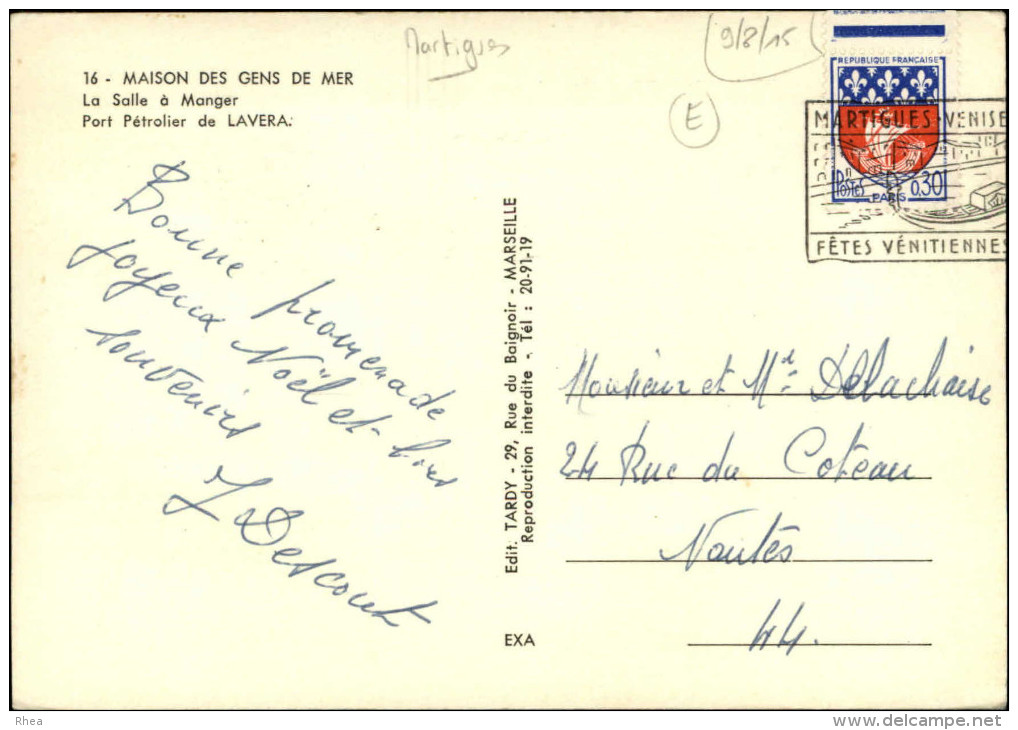 Martigues
9/8/15
E
16 - MAISON DES GENS DE MER
La Salle à Manger
Port Pétrolier de LAVERA.
REPUBLIQUE FRANÇAISE
POSTES
0,30
PARIS
MARTIGUES - VENISE
FÊTES VÉNITIENNES
Bonne promenade
Joyeux Noël et bons
souvenirs
J Descourt
Edit. TARDY - 29, Rue du Baignoir - MARSEILLE
Reproduction interdite - Tél : 20-91-19
EXA
Monsieur et Me Delachaise
24 Rue du Coteau
Nantes
44.
Rhea
www.delcampe.net